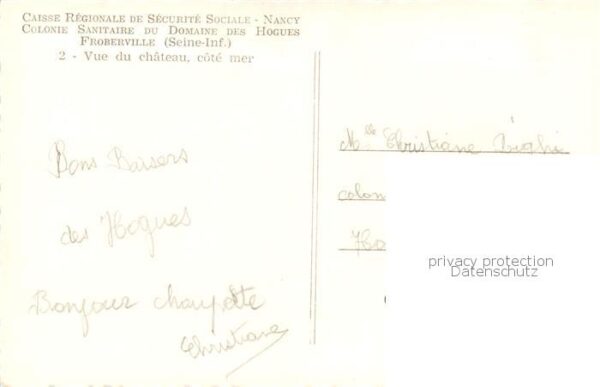 CAISSE RÉGIONALE DE SÉCURITÉ SOCIALE - NANCY
COLONIE SANITAIRE DU DOMAINE DES HOGUES
FROBERVILLE (Seine-Inf.)
2 - Vue du château, côté mer
Bons Baisers
des Hogues
Bonjour
Christiane
Mlle Christiane
colon
Ho
privacy protection
Datenschutz